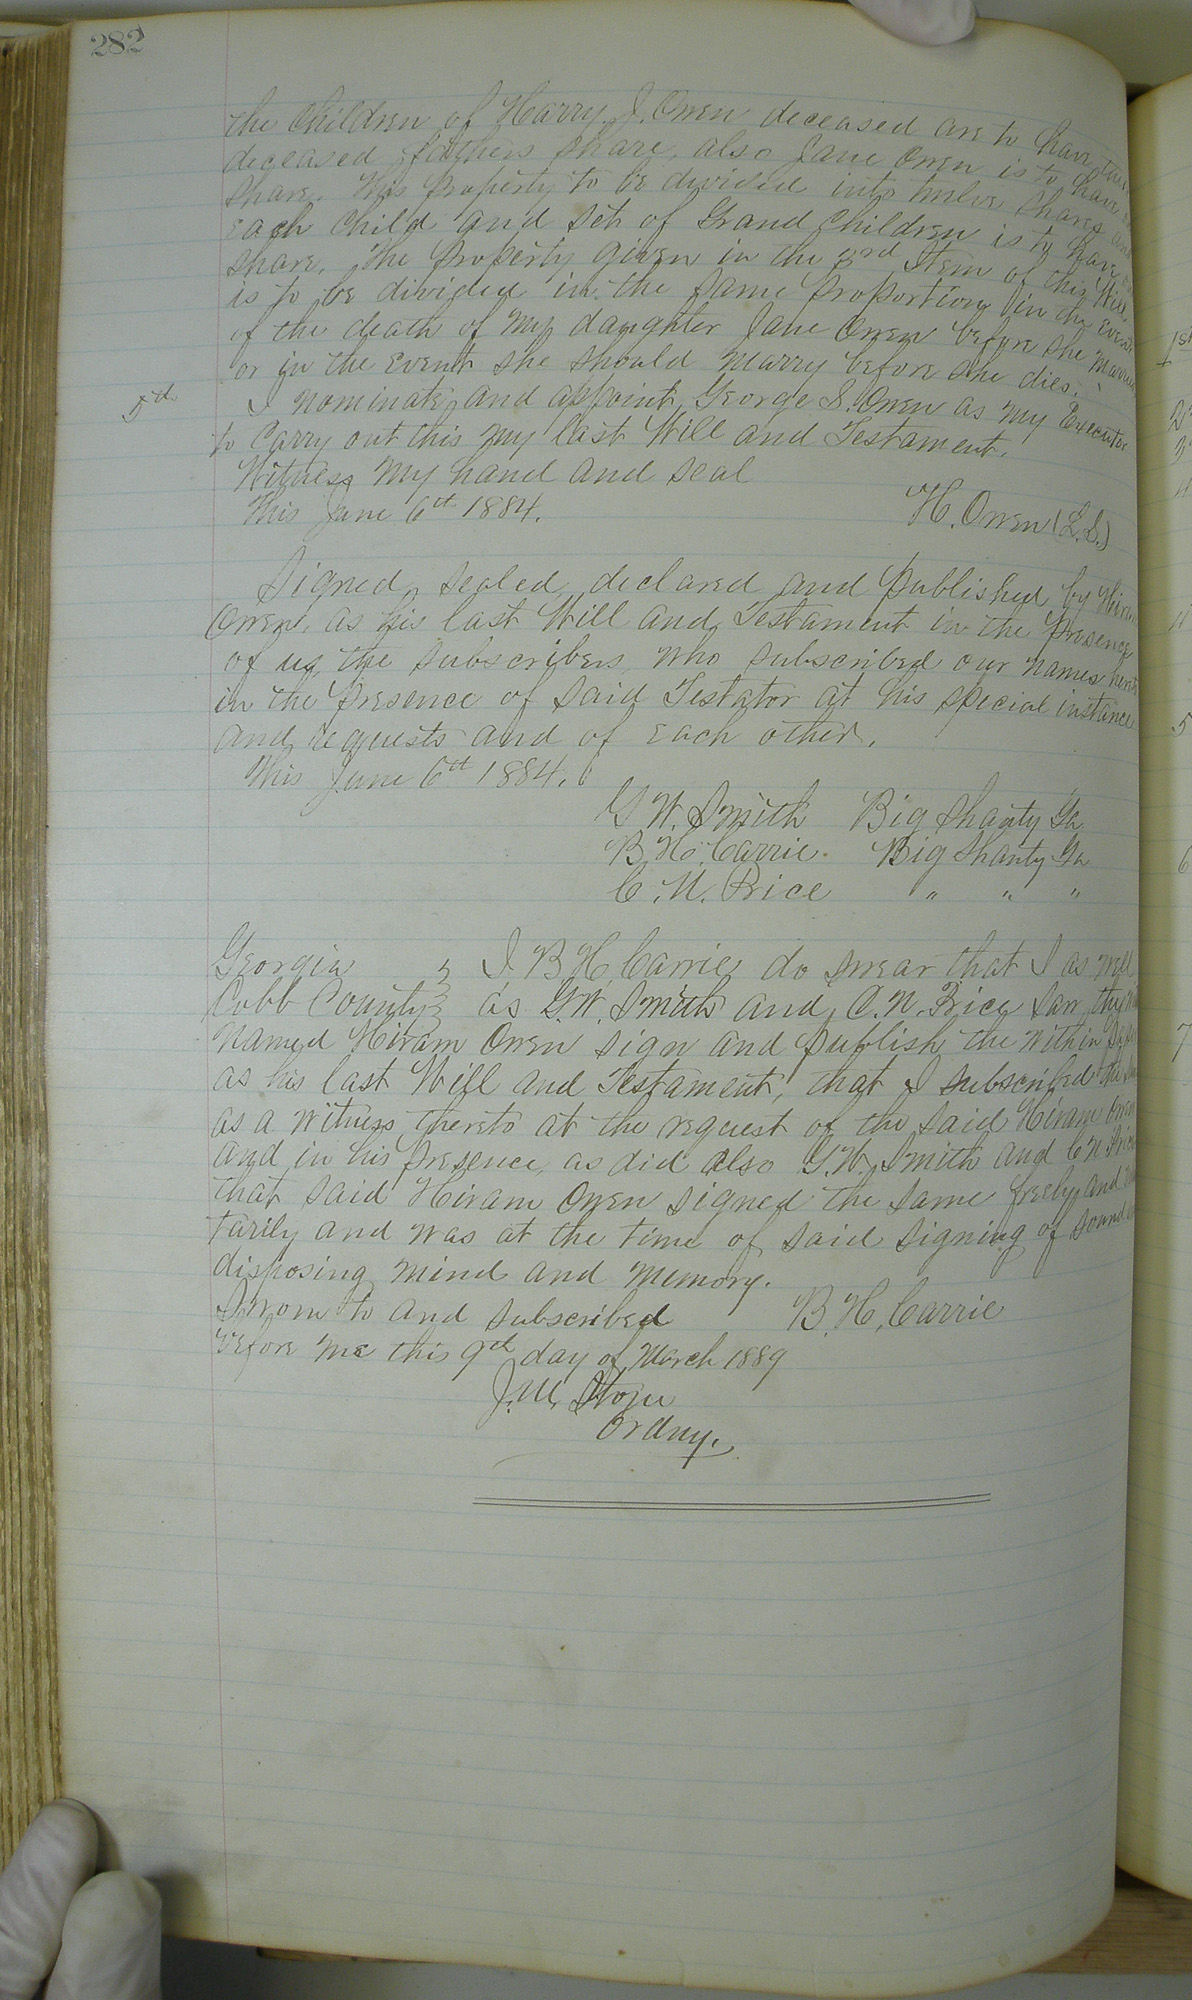 282
the children of Harry J. Owen deceased are to have their
deceased fathers share, also Jane Owen is to have
share. This property to be divided into twelve shares and
each child and set of Grand children is to have
share. The property given in the 3rd Item of this Will,
is to be divided in the same proportion in the event
of the death of my daughter Jane Owen before she marries
or in the event she should marry before she dies.
5th I nominate and appoint George S. Owen as my Executor
to carry out this my last Will and Testament.
Witness my hand and seal
This June 6th 1884.
H. Owen (L.S.)
Signed, sealed, declared and published by Hiram
Owen, as his last Will and Testament in the presence
of us, the subscribers who subscribed our names hereto
in the presence of said Testator at his special instance
and requests and of each other.
This June 6th 1884.
G W. Smith Big Shanty Ga
B. H. Carrie. Big Shanty Ga
C. N. Price " " "
Georgia } I, B H Carrie do swear that I as well
Cobb County } as G. W. Smith and C. N. Price saw the
named Hiram Owen sign and publish the within paper
as his last Will and Testament, that I subscribed the
as a witness thereto at the request of the said Hiram Owen
and in his presence, as did also G. W. Smith and C N Price
that said Hiram Owen signed the same freely and
tarily and was at the time of said signing of sound
disposing mind and memory.
Sworn to and subscribed B. H. Carrie
before me this 9th day of March 1889
J. M. Stone
Ordny.
1st
5
6
7